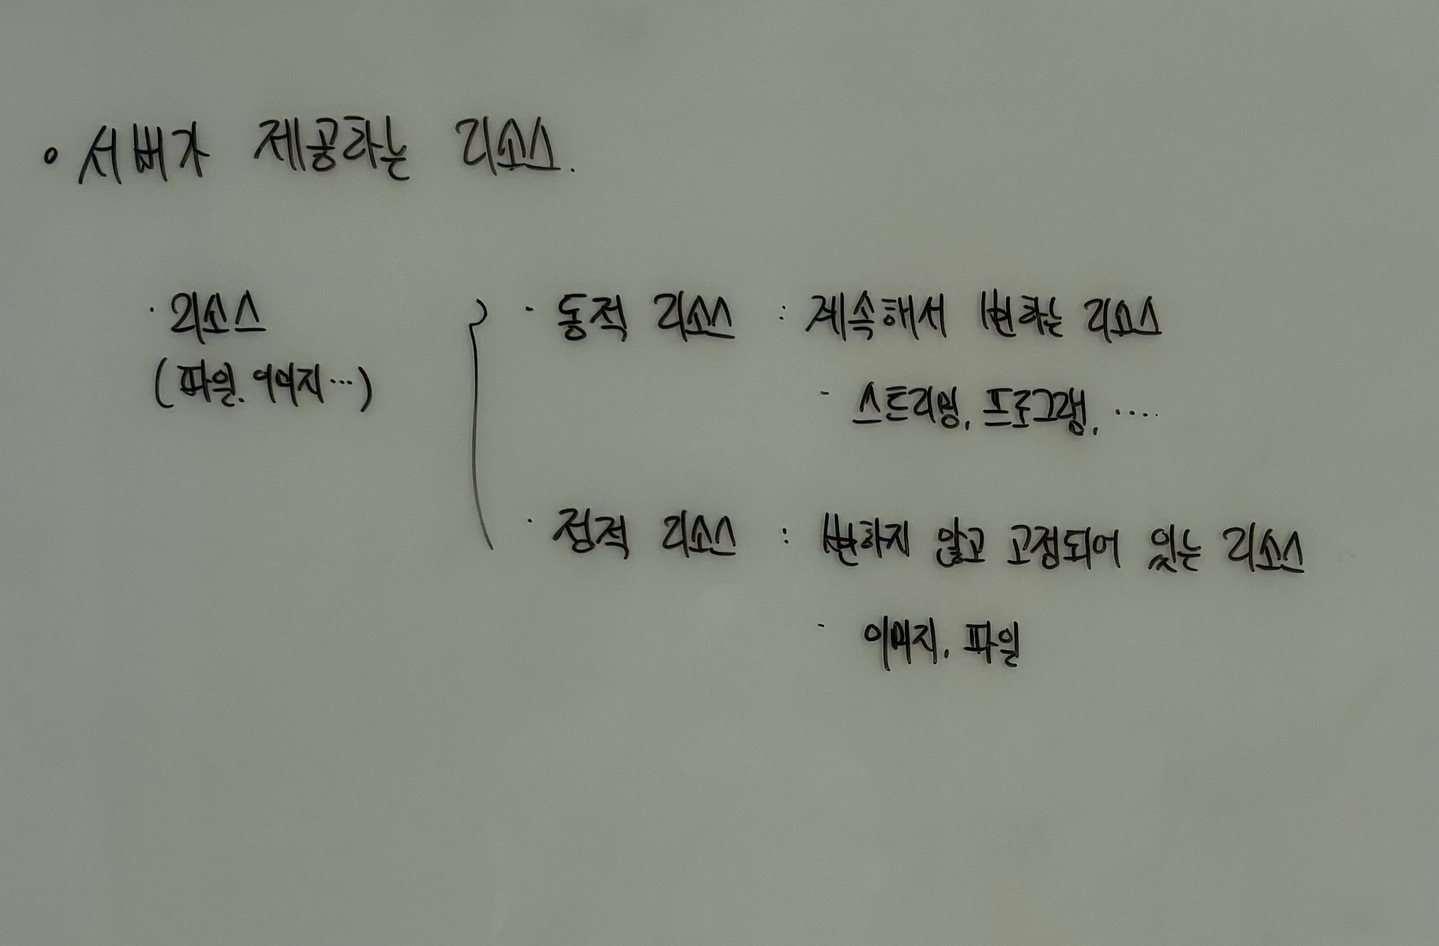 • 서버가 제공하는 리소스.
· 리소스
(파일. 이미지…)
· 동적 리소스 : 계속해서 변하는 리소스
- 스트리밍, 프로그램, ....
· 정적 리소스 : 변하지 않고 고정되어 있는 리소스
- 이미지, 파일